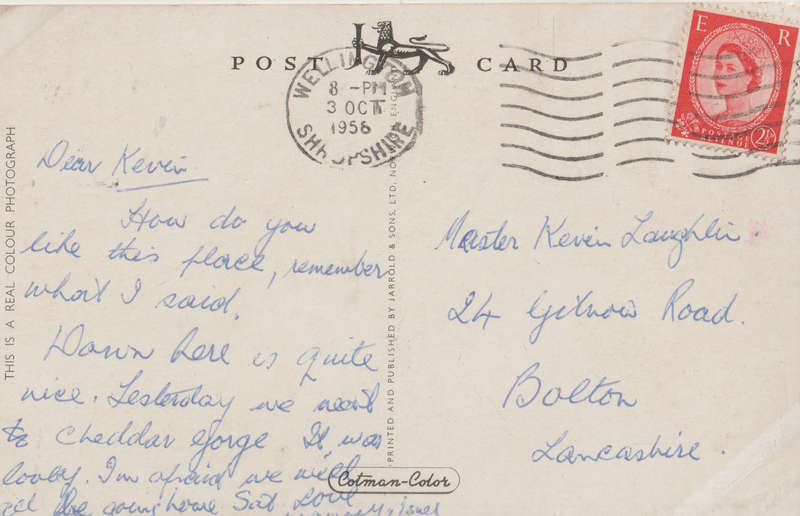 POST CARD
WELLINGTON
8 - PM
3 OCT
1956
SHROPSHIRE
E R
2½
THIS IS A REAL COLOUR PHOTOGRAPH
Dear Kevin.
How do you
like this place, remember
what I said.
Down here is quite
nice. Yesterday we went
to Cheddar Gorge It was
lovely. I'm afraid we will
be going home Sat. Love
PRINTED AND PUBLISHED BY JARROLD & SONS, LTD.
Cotman-Color
Master Kevin Laughlin
24 Gilnow Road.
Bolton
Lancashire.